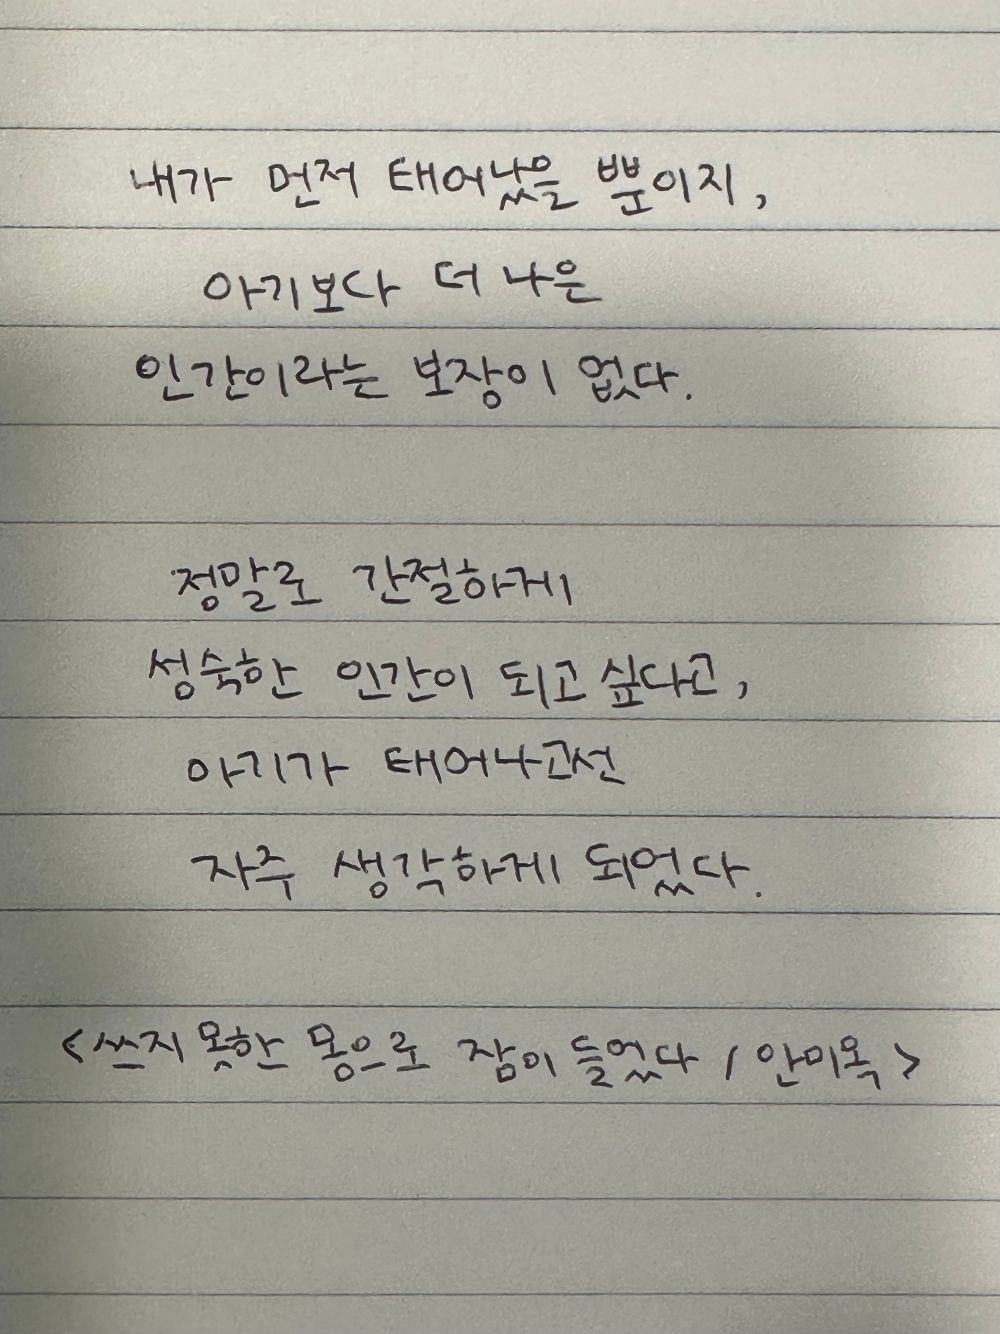 내가 먼저 태어났을 뿐이지,
아기보다 더 나은
인간이라는 보장이 없다.
정말로 간절하게
성숙한 인간이 되고 싶다고,
아기가 태어나고선
자주 생각하게 되었다.
<쓰지 못한 몸으로 잠이 들었다 / 안미옥>